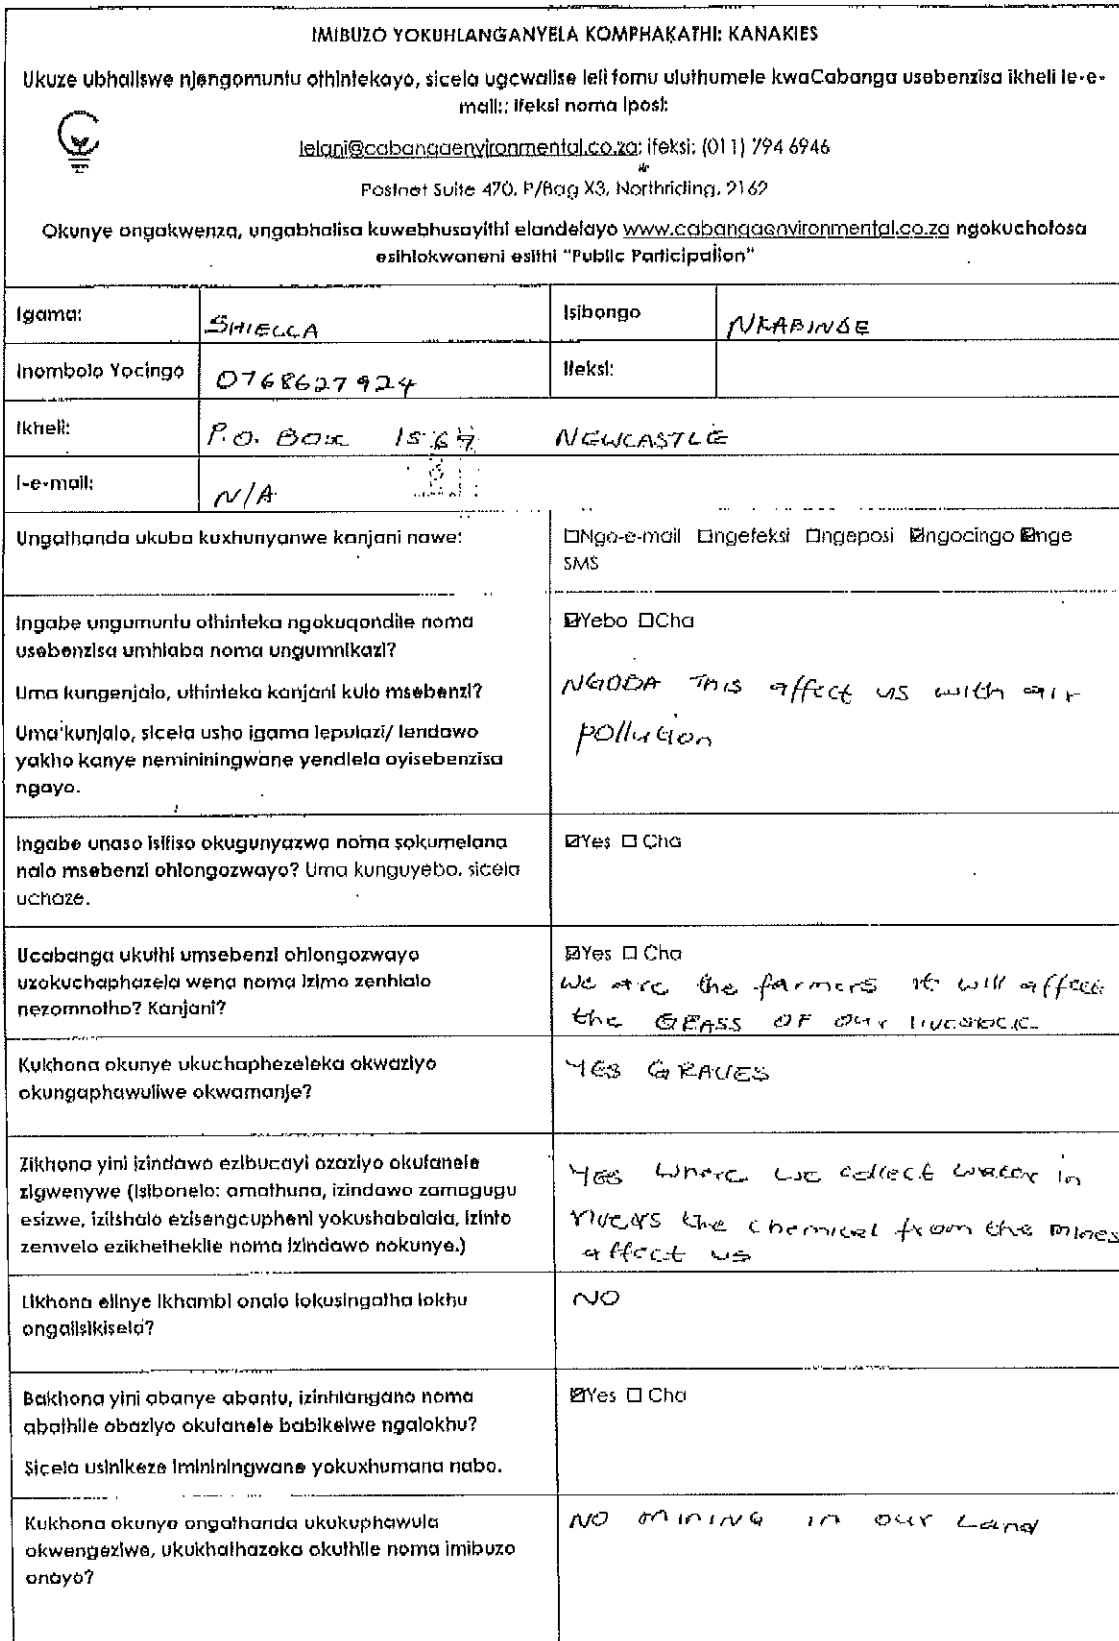 IMIBUZO YOKUHLANGANYELA KOMPHAKATHI: KANAKIES
Ukuze ubhaliswe njengomuntu othintekayo, sicela ugcwalise leli fomu uluthumele kwaCabanga usebenzisa ikheli le-e-
mail:; ifeksi noma iposi:
lelani@cabangaenvironmental.co.za; ifeksi: (011) 794 6946
Postnet Suite 470, P/Bag X3, Northriding, 2162
Okunye ongakwenza, ungabhalisa kuwebhusayithi elandelayo www.cabangaenvironmental.co.za ngokucholosa
esihlokwaneni esithi "Public Participation"
Igama: SHIELLA Isibongo NKABINDE
Inombolo Yocingo 0768627924 Ifeksi:
Ikheli: P.O. BOX 1567 NEWCASTLE
I-e-mail: N/A
Ungathanda ukuba kuxhunyanwe kanjani nawe: ☐Ngo-e-mail ☐ngefeksi ☐ngeposi ☑ngocingo ☑nge
SMS
Ingabe ungumuntu othinteka ngokuqondile noma
usebenzisa umhlaba noma ungumnikazi?
☑Yebo ☐Cha
Uma kungenjalo, uthinteka kanjani kulo msebenzi?
Uma kunjalo, sicela usho igama lepulazi/ lendawo
yakho kanye nemininingwane yendlela oyisebenzisa
ngayo.
NGOBA THIS affect us with air
pollution
Ingabe unaso isifiso okugunyazwa noma sokumelana
nalo msebenzi ohlongozwayo? Uma kunguyebo, sicela
uchaze.
☑Yes ☐ Cha
Ucabanga ukuthi umsebenzi ohlongozwayo
uzokuchaphazela wena noma izimo zenhlalo
nezomnotho? Kanjani?
☑Yes ☐ Cha
We are the farmers it will affect
the GRASS OF our livestock
Kukhona okunye ukuchaphezeleka okwaziyo
okungaphawuliwe okwamanje?
YES GRAVES
Zikhona yini izindawo ezibucayi ozaziyo okufanele
zigwenywe (Isibonelo: amathuna, izindawo zamagugu
esizwe, izitshalo ezisengcupheni yokushabalala, izinto
zemvelo ezikhethekile noma izindawo nokunye.)
YES Where we collect water in
rivers the chemical from the mines
affect us
Likhona elinye ikhambi onalo lokusingatha lokhu
ongalisikisela?
NO
Bakhona yini abanye abantu, izinhlangano noma
abathile obaziyo okufanele babikelwe ngalokhu?
Sicela usinikeze imininingwane yokuxhumana nabo.
☑Yes ☐ Cha
Kukhona okunye ongathanda ukukuphawula
okwengeziwe, ukukhathazeka okuthile noma imibuzo
onayo?
NO mining in our Land